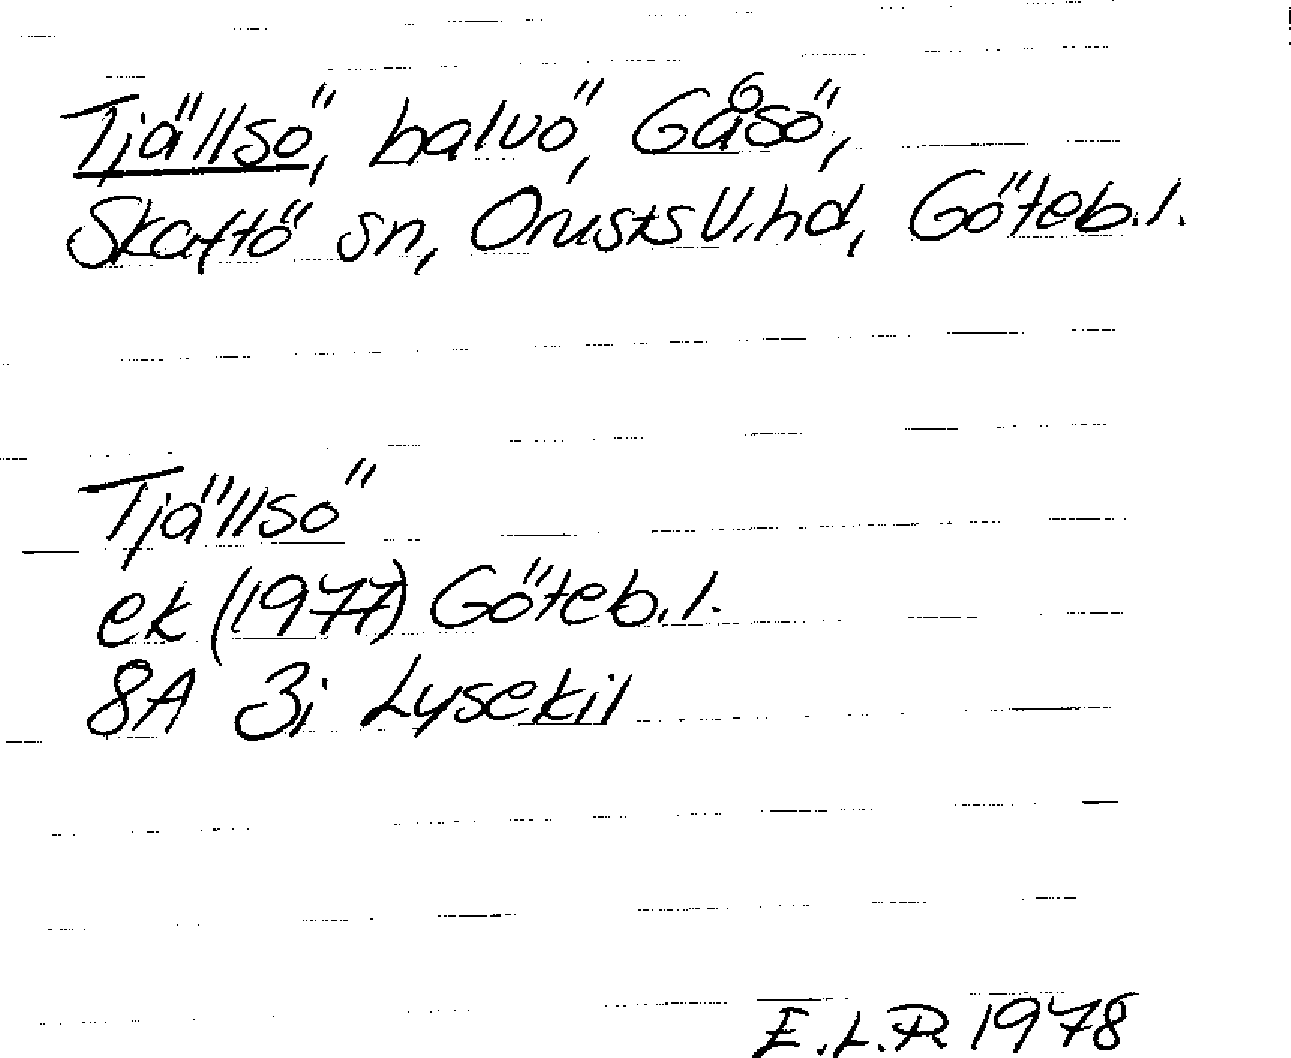 Tjällsö, halvö, Gåsö,
Skaftö sn, Orusts V. hd, Göteb. l.
Tjällsö
ek (1977) Göteb. l.
8A 3i Lysekil
E.L.R 1978